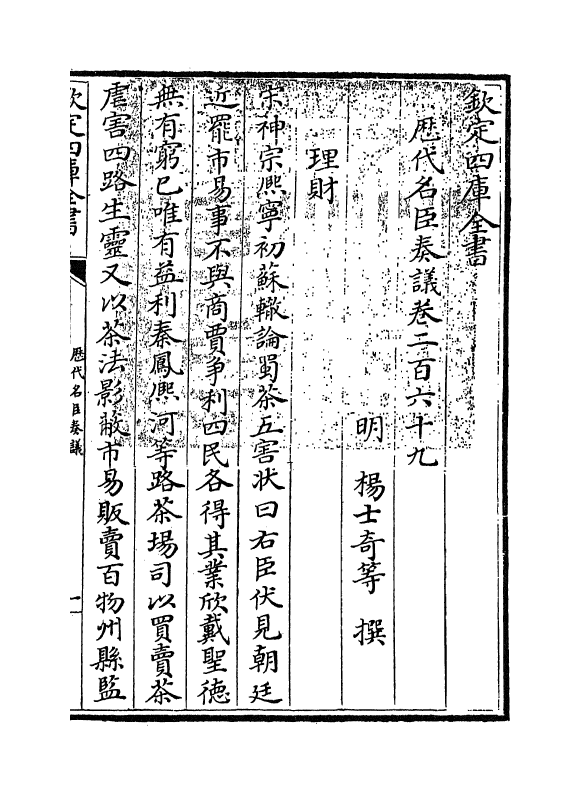 欽定四庫全書
歷代名臣奏議卷二百六十九
明 楊士奇等 撰
理財
宋神宗熙寧初蘇轍論蜀茶五害狀曰右臣伏見朝廷
近罷市易事不與商賈爭利四民各得其業欣戴聖德
無有窮已唯有益利秦鳳熙河等路茶場司以買賣茶
虐害四路生靈又以茶法影蔽市易販賣百物州縣監
欽定四庫全書
歷代名臣奏議
一